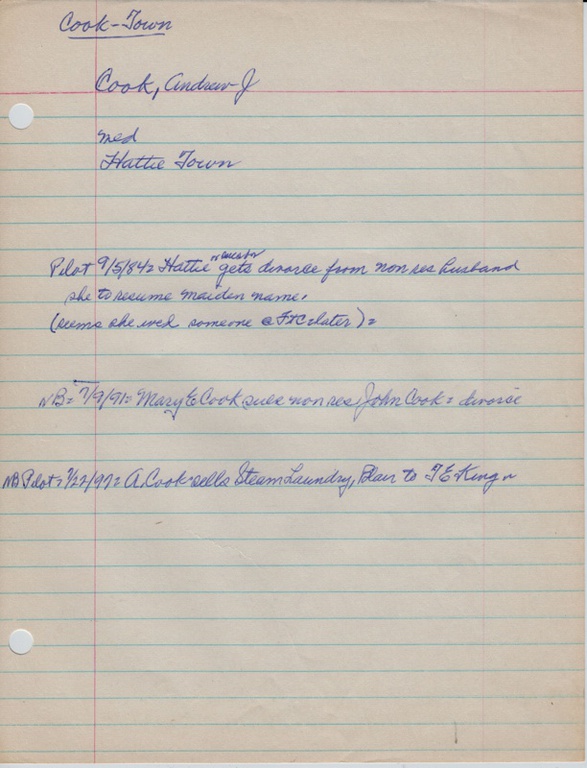 Cook-Town
Cook, Andrew J
med
Hattie Town
Pilot 9/5/84= Hattie gets divorce from non res husband
she to resume maiden name.
(seems she wed someone @ later)=
NB= 7/9/91= Mary E Cook sues non res John Cook= divorce
NB Pilot= 7/22/97= A. Cook sells Steam Laundry, Blair to T E King